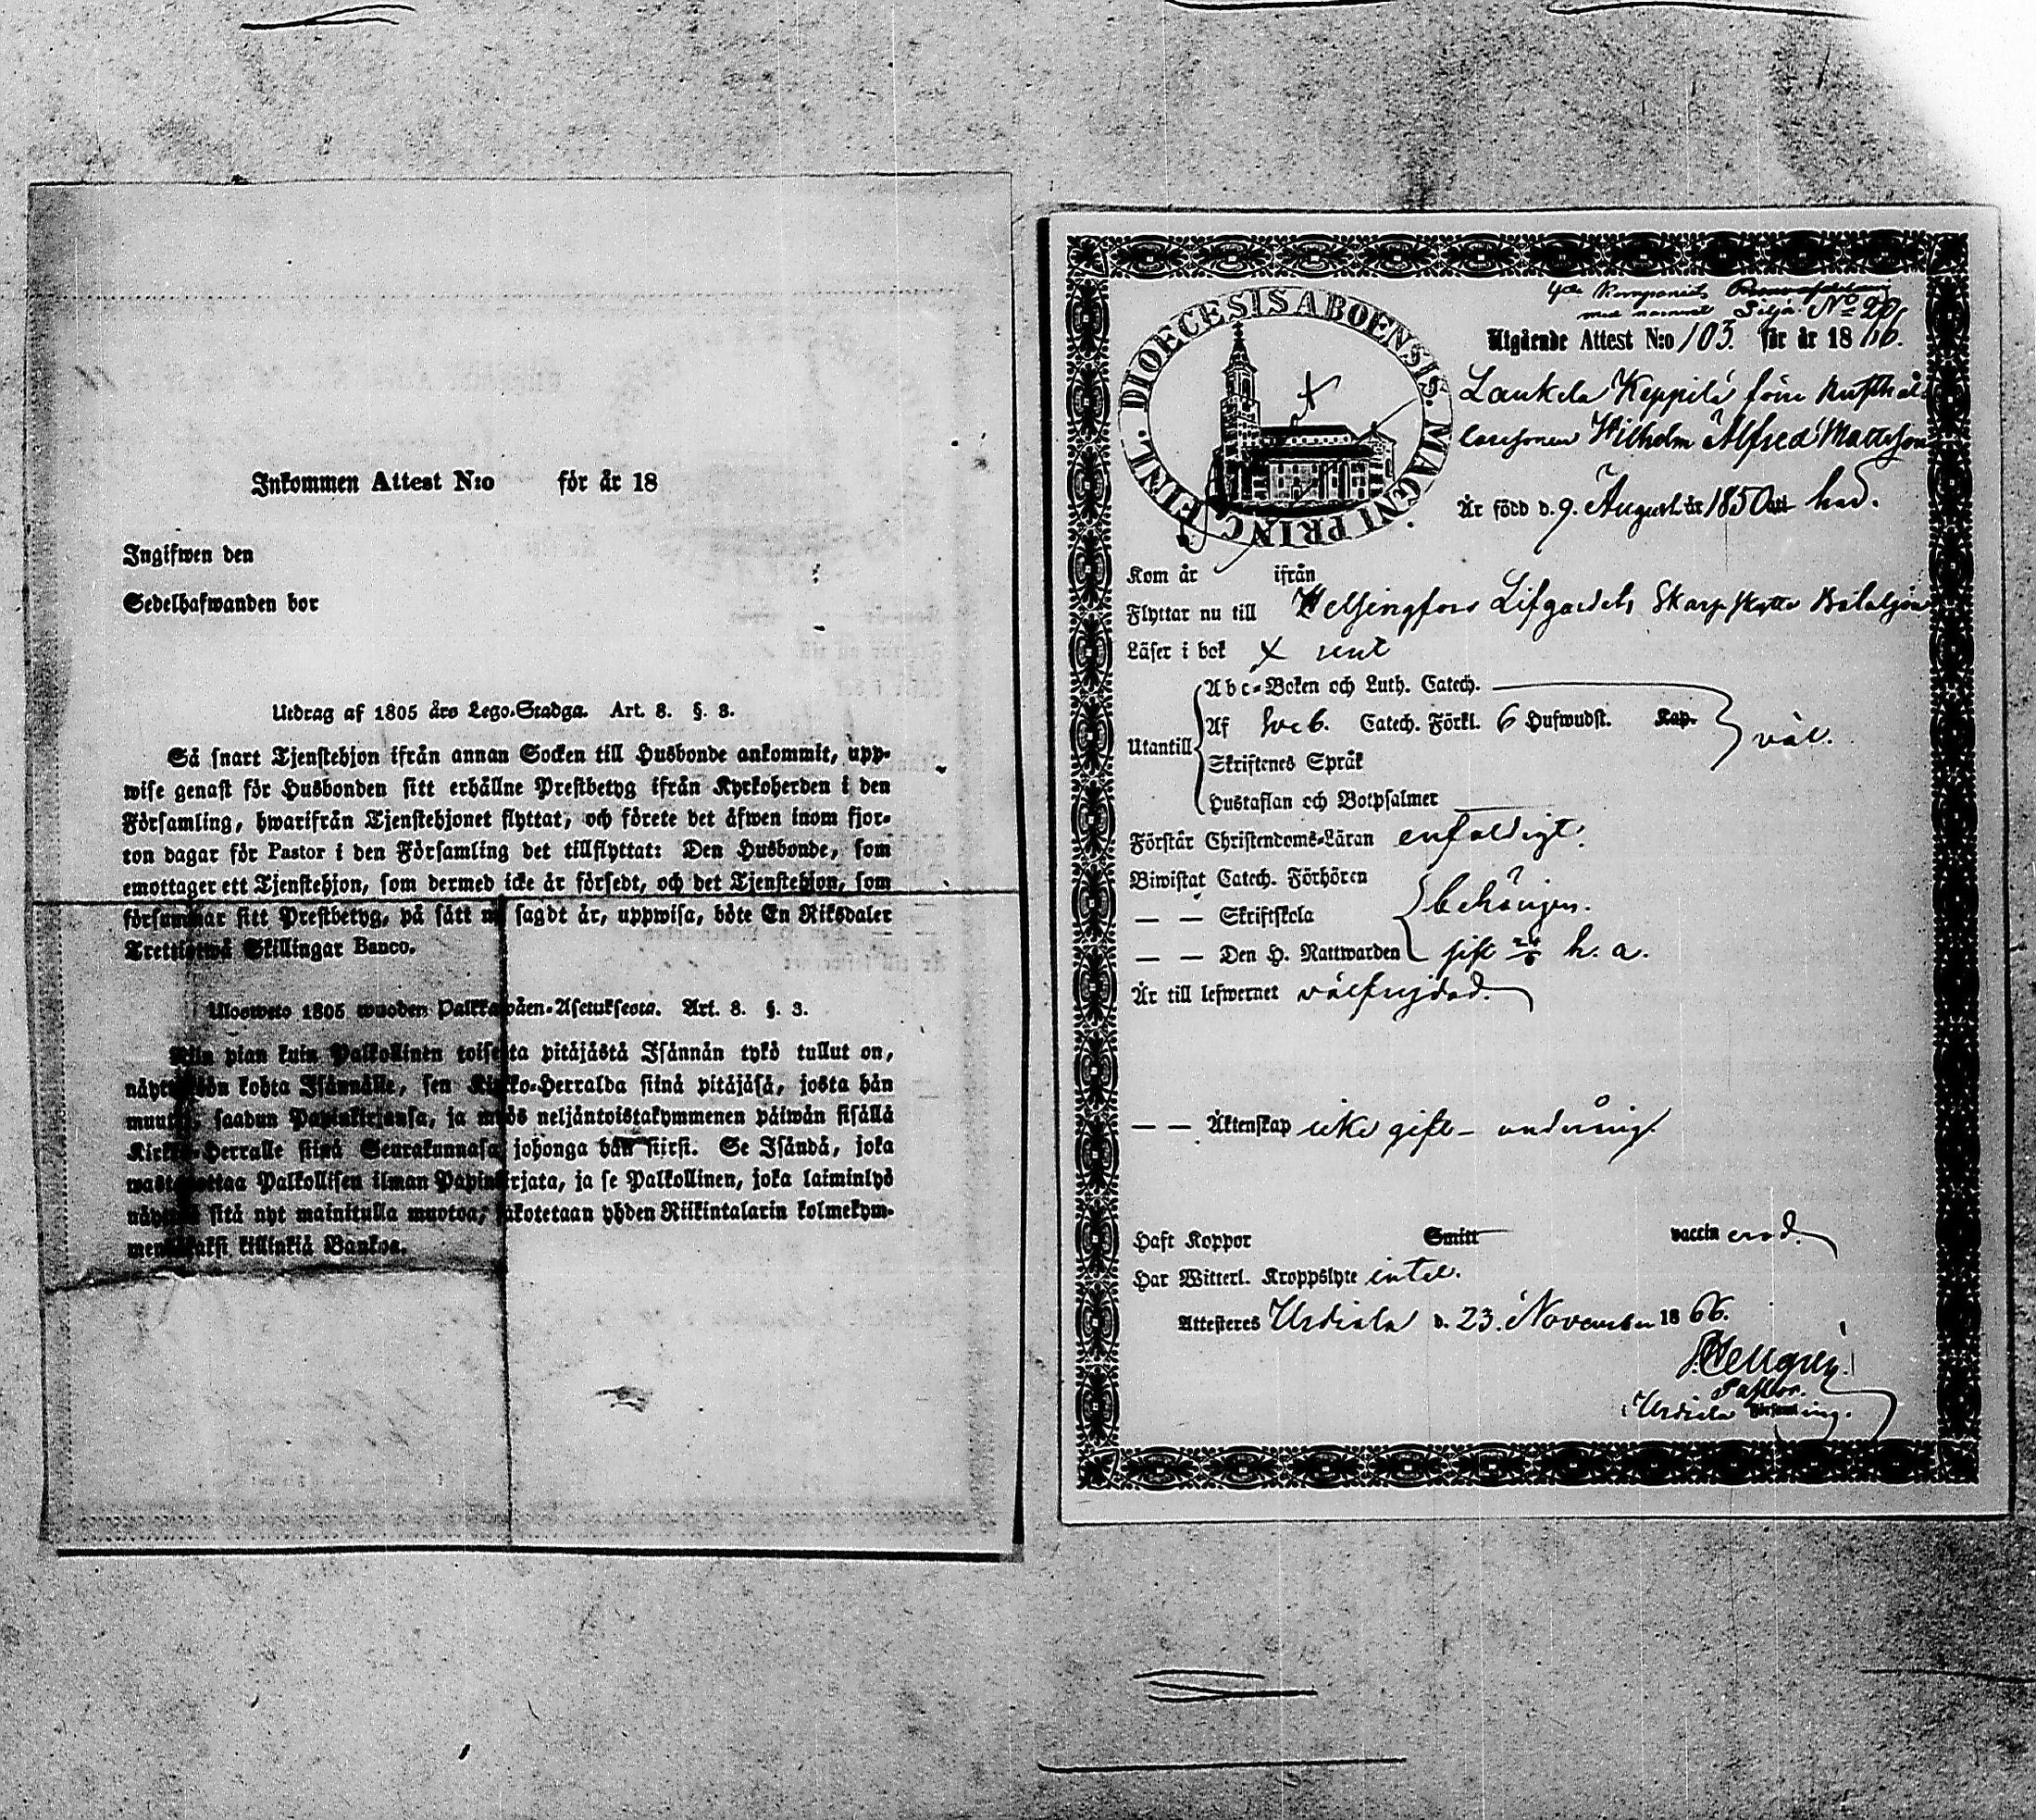 Inkommen Attest N:o för år 18
Ingifwen den
Sedelhafwanden bor
Utdrag af 1805 års Lego-Stadga. Art. 8. §. 3.
Så snart Tjenstehjon ifrån annan Socken till Husbonde ankommit, upp-
wise genast för Husbonden sitt erhållne Prestbetyg ifrån Kyrkoherden i den
Församling, hwarifrån Tjenstehjonet flyttat, och förete det äfwen inom fjor-
ton dagar för Pastor i den Församling det tillflyttat: Den Husbonde, som
emottager ett Tjenstehjon, som dermed icke är försedt, och det Tjenstehjon, som
försummar sitt Prestbetyg, på sätt nu sagdt är, uppwisa, böte En Riksdaler
Trettiotwå Skillingar Banco.
Ulosweto 1805 wuoden Palkkawäen-Asetuksesta. Art. 8. §. 3.
Niin pian kuin Palkollinen toisesta pitäjästä Isännän tykö tullut on,
kohta Isännälle, sen Kirkko-Herralda siinä pitäjäsä, josta hän
saadun Papinkirjansa, ja myös neljäntoistakymmenen päiwän sisällä
Kirkko-Herralle siinä Seurakunnasa johonga hän siirsi. Se Isändä, joka
wastaanottaa Palkollisen ilman Papinkirjata, ja se Palkollinen, joka laiminlyö
sitä nyt mainitulla muotoa, sakotetaan yhden Riikintalarin kolmekym-
mendäkaksi killinkiä Bankoa.
DIOECESIS ABOENSIS. MAGNI PRINC. FINL.
4de Kompaniets
med namnet Siljá. No 20
Utgående Attest N:o 103. för år 1866.
Laukela Keppilä förre Rusthål-
laresonen Wilhelm Alfred Mattsson
Är född d. 9. August. år 1850 had.
Kom år ifrån
Flyttar nu till Helsingfors Lifgardets Skarpskytte Bataljon
Läser i bok x rent
Utantill
Abc-Boken och Luth. Catech.
Af Sveb. Catech. Förkl. 6 Hufwudst. Kap. väl.
Skriftenes Språk
Hustaflan och Botpsalmer
Förstår Christendoms-Läran enfaldigt.
Biwistat Catech. Förhören
— — Skriftskola behörigen.
— — Den H. Nattwarden sist h. a.
Är till lefwernet välfrejdad.
— — Äktenskap icke gift – underårig.
Haft Koppor Smitt vaccin erad.
Har Witterl. Kroppslyte intet.
Attesteres Urdiala d. 23. November 1866.
Hellgren
Pastor.
i Urdiala Församling.